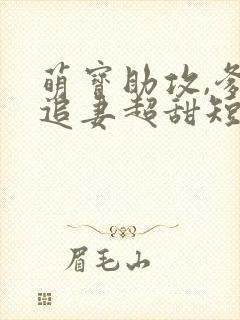 萌宝助攻,爹
追妻超甜短
眉毛山